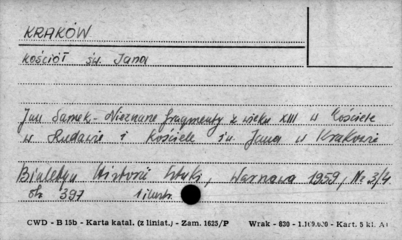 KRAKÓW
kościół św. Jana
Jan Samek - Nieznane fragmenty z wieku XIII w kościele
w Rudawie i kościele św. Jana w Krakowie
Biuletyn Historii Sztuki, Warszawa 1959, Nr 3/4
str. 397 1 ilustr.
CWD - B 15b - Karta katal. (z liniat.) - Zam. 1625/P Wrak - 630 - 1.169.000 - Kart. 5 kl. A1